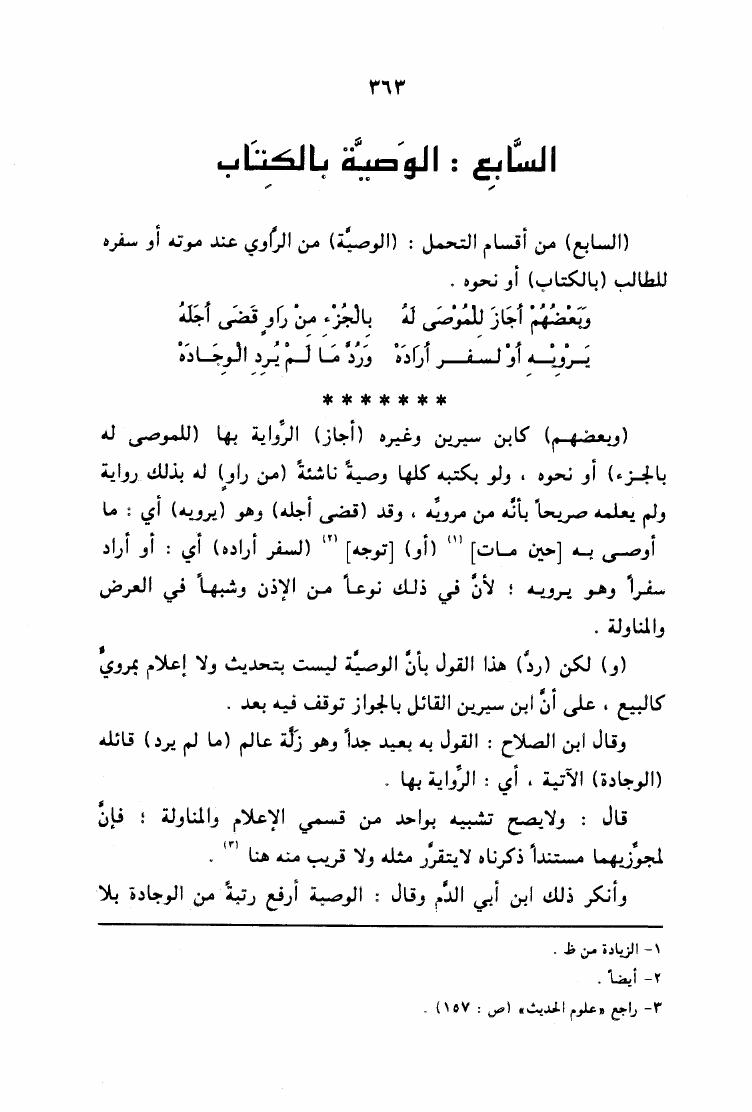 ٣٦٣
السَّابِع : الوَصيَّة بالكِتَاب
(السابع) من أقسام التحمل : (الوصيَّة) من الرَّاوي عند موته أو سفره
للطالب (بالكتاب) أو نحوه .
وَبَعْضُهُمْ أَجَازَ لِلْمُوْصَى لَهُ بالْجُزْءِ مِنْ رَاوٍ قَضَى أَجَلَهُ
يَــرْوِيْــهِ أَوْ لسـفــرٍ أَرَادَهْ وَرُدَّ مَا لَــمْ يُرِدِ الْوِجَــادَهْ
*******
(وبعضهـم) كابن سيرين وغيره (أجاز) الرِّواية بها (للموصى له
بالجـزء) أو نحوه ، ولو بكتبه كلها وصيةً ناشئةً (من راوٍ) له بذلك رواية
ولم يعلمه صريحاً بأنَّه من مرويِّه ، وقد (قضى أجله) وهو (يرويه) أي : ما
أوصـى بـه [حين مـات] (١) (أو) [توجه] (٢) (لسفر أراده) أي : أو أراد
سفـراً وهـو يـرويـه ؛ لأنَّ في ذلـك نوعـاً مـن الإذن وشبهـاً في العرض
والمناولة .
(و) لكن (ردَّ) هذا القول بأنَّ الوصيَّة ليست بتحديث ولا إعلام بمرويٍّ
كالبيع ، على أنَّ ابن سيرين القائل بالجواز توقف فيه بعد .
وقال ابن الصلاح : القول به بعيد جداً وهو زلَّة عالم (ما لم يرد) قائله
(الوجادة) الآتية ، أي : الرِّواية بها .
قال : ولايصح تشبيه بواحد من قسمي الإعلام والمناولة ؛ فإنَّ
لمجوِّزيهما مستنداً ذكرناه لايتقرَّر مثله ولا قريب منه هنا (٣) .
وأنكر ذلك ابن أبي الدَّم وقال : الوصية أرفع رتبةً من الوجادة بلا
١- الزيادة من ظ .
٢- أيضاً .
٣- راجع «علوم الحديث» (ص : ١٥٧) .